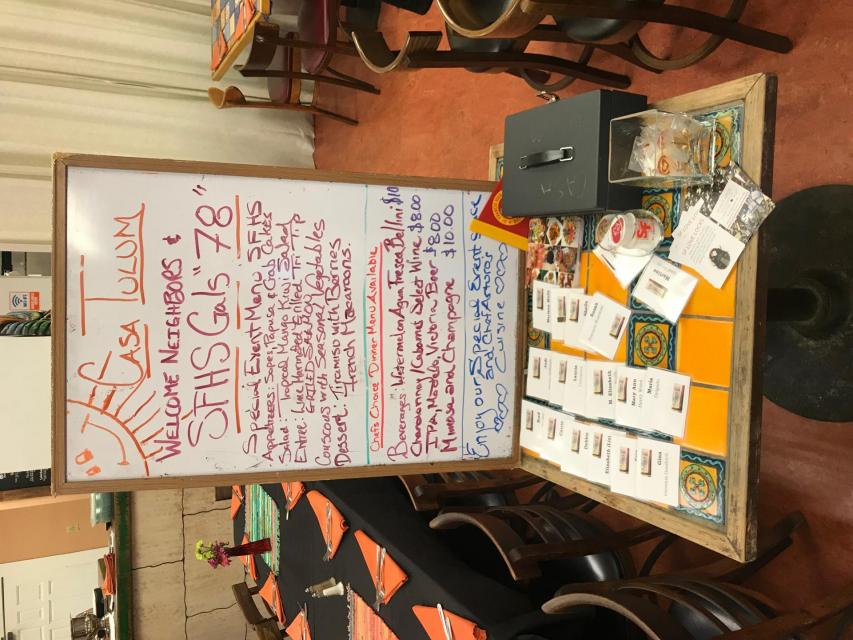 CASA TULUM
WELCOME NEIGHBORS &
SFHS Gals "78"
Special Event Menu SFHS
Appetizers: Sopes, Papusa & Crab Cakes
Salad: Tropical Mango Kiwi Salad
Entree: Wine Marinated Grilled Tri Tip
GRILLED
Couscous with Seasonal Vegetables
Dessert: Tiramiso with Berries
French Macaroons.
Chefs Choice Dinner Menu Available
Beverages: Watermelon Agua Fresca Bellini $10
Chardonnay/Cabernet Select Wine $800
IPA, Modelo, Victoria Beer $800
Mimosa and Champagne $10.00
Enjoy our Special Event
and Chef Arturos
Cuisine
CASH
Marlene
Susan
M. Elizabeth
Mary Ann
Maria
Debbie
Elizabeth
Gina
WiFi